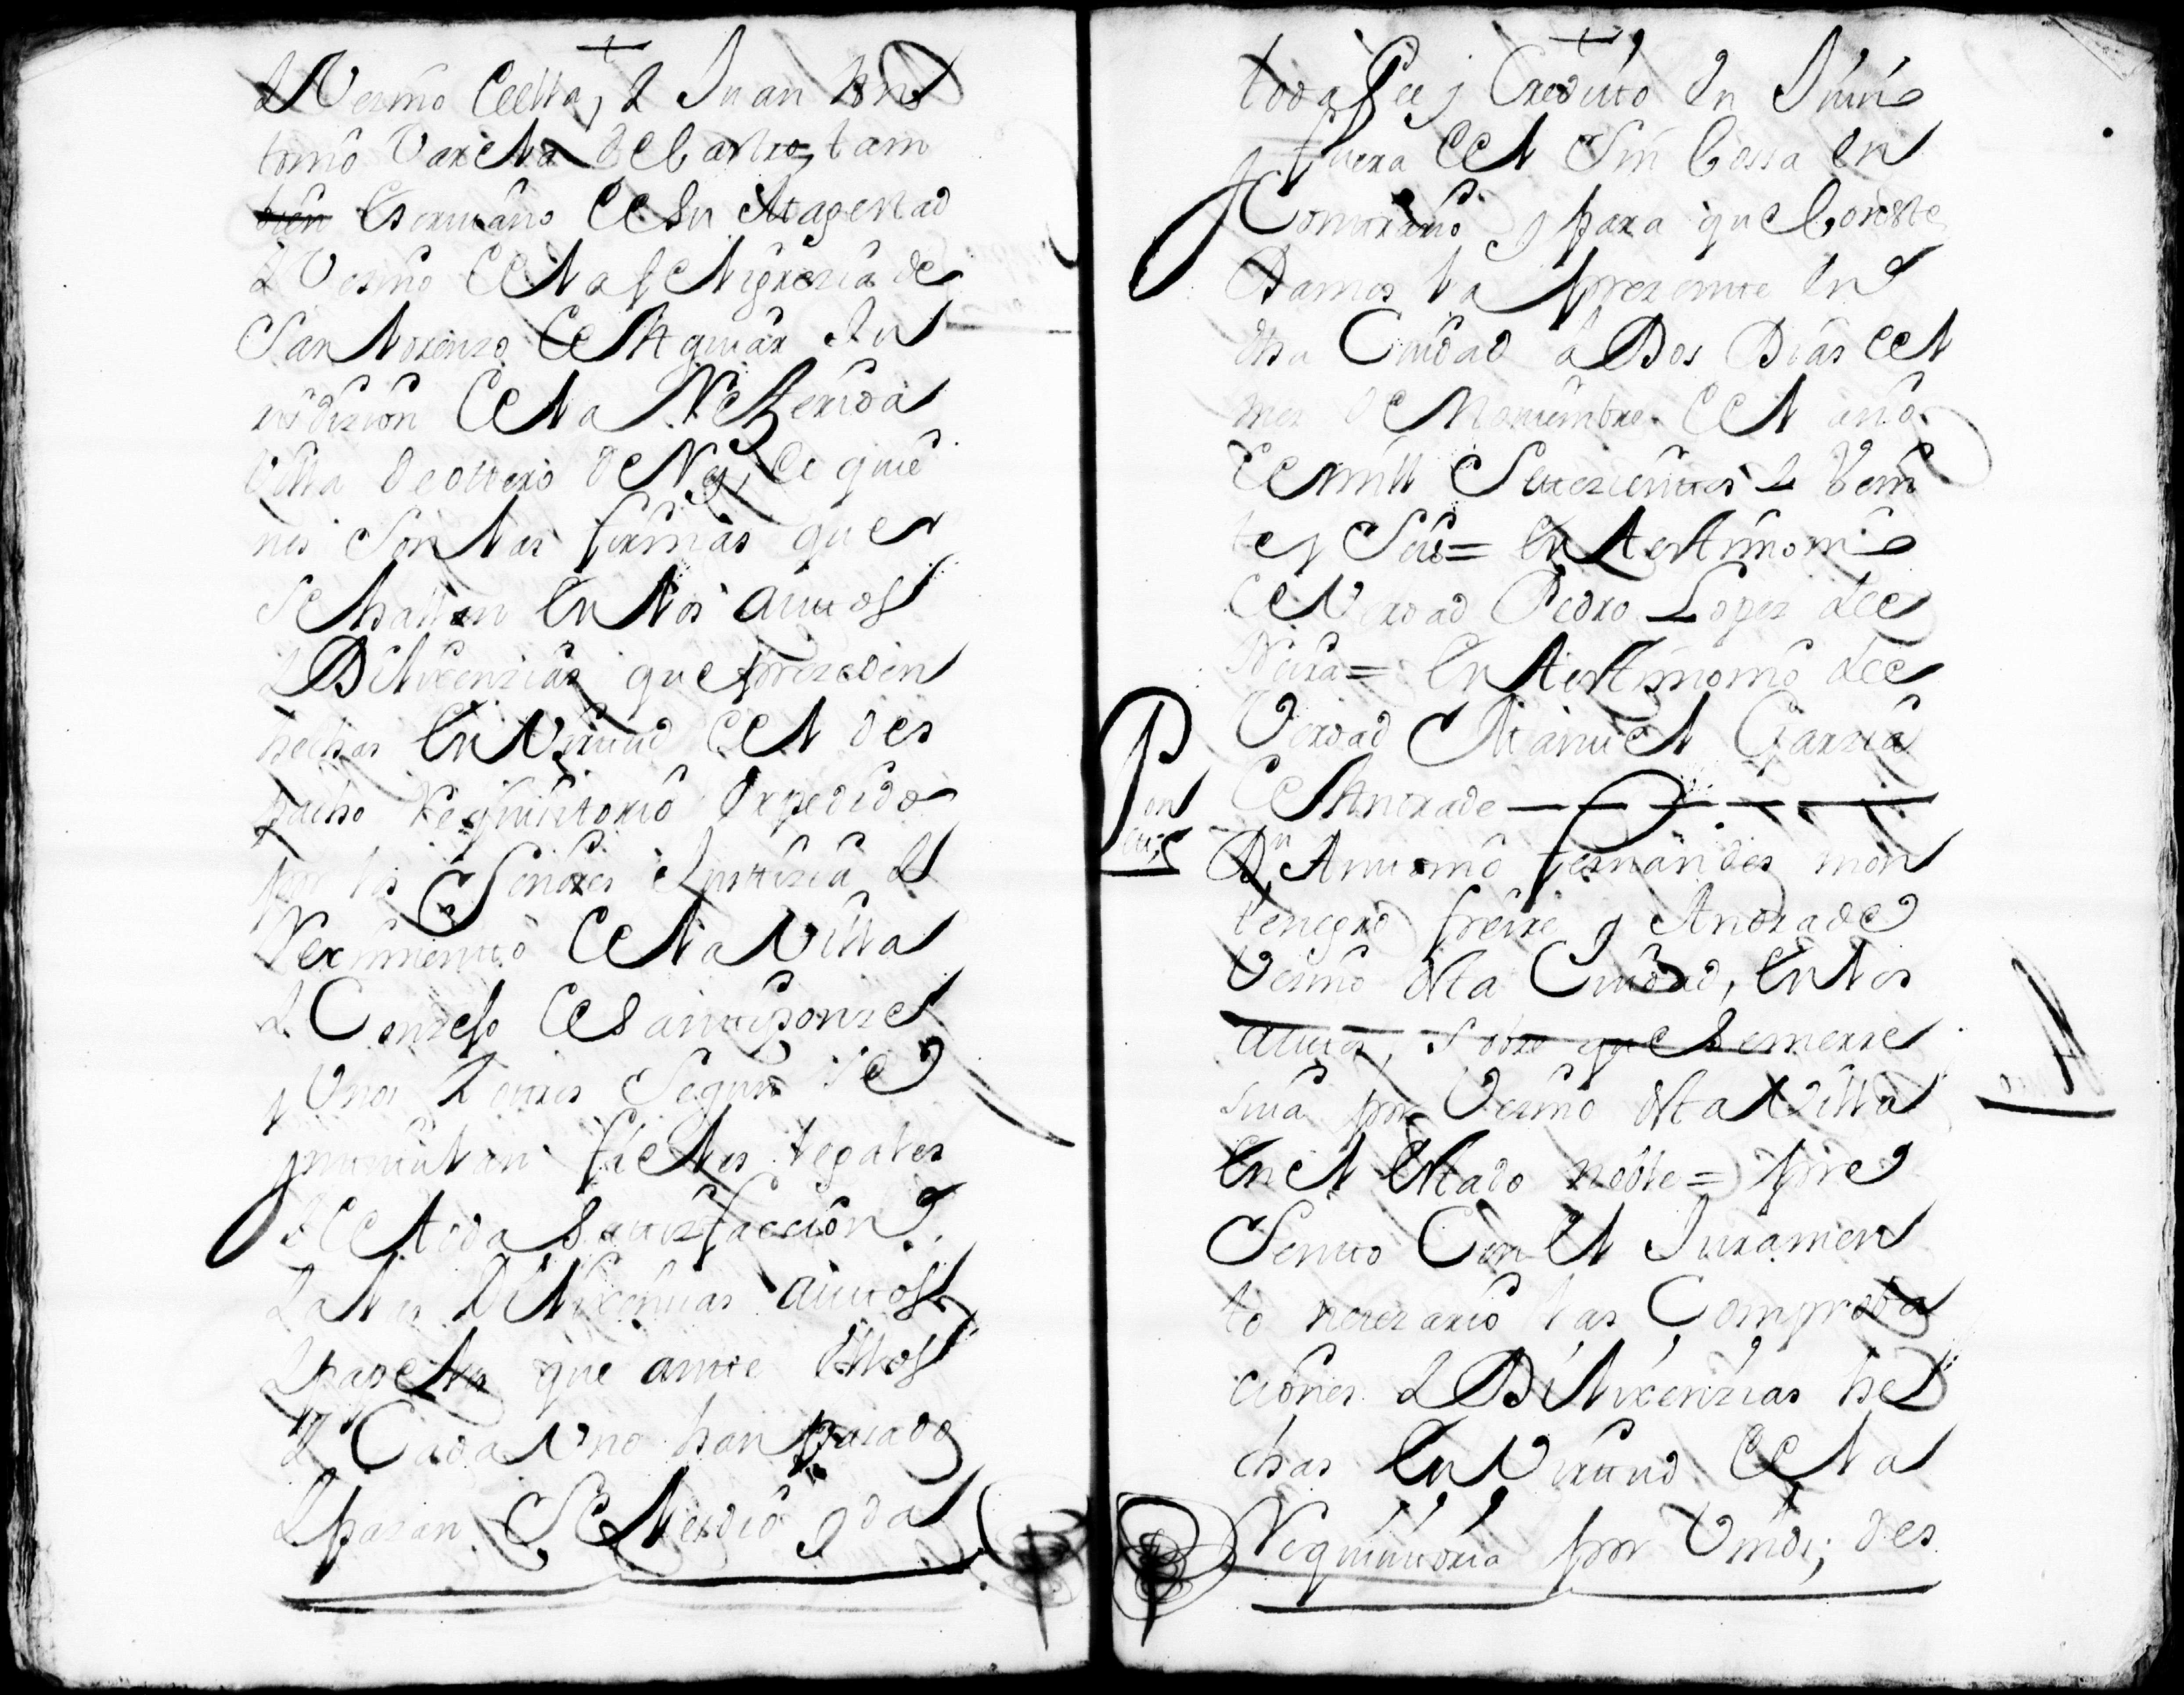 +
& Vezino della, & Juan An
tonio Varela de Castro, tam
bien Escrivano de Su Magestad
& Vezino de la feligrezia de
San Lorenzo de Aguiar Ju
risdizion de la Referida
Villa de Otero de Rey, de quie
nes Son las firmas que
Se hallan En los autos
& Dilixenzias que prezeden
hechas En Virtud del des
pacho Requisitorio Expedido
por los Señores Justizia &
Reximiento de la Villa
& Conzejo de Santiponze
y Unos & otros Segun Se
yntitulan fieles legales
& de toda Satisfaccion &
a las Dilixenzias autos
& papeles que ante Ellos
& Cada Uno han pasado
& pasan Se les dio y da
+
toda fee y Credito En Juizio
y fuera del Sin Cossa En
Contrario y para que Conste
Damos la prezente En
dha Ciudad a Dos Dias del
mes de Noviembre del año
de mill Setezientos & Vein
te y Seis = En testimonio
de Verdad Pedro Lopez de
Neira = En testimonio de
Verdad Manuel Garzia
de Andrade
Dn Antonio fernandes mon
tenegro freire y Andrade
Vezino desta Ciudad, En los
autos, Sobre que Se me rre
siva por Vezino desta Villa
En el Estado noble = pre
Sento Con el Juramen
to nezezario las Comproba
ciones & Dilixenzias he
chas En Virtud de la
Requisitoria por Vmds; des